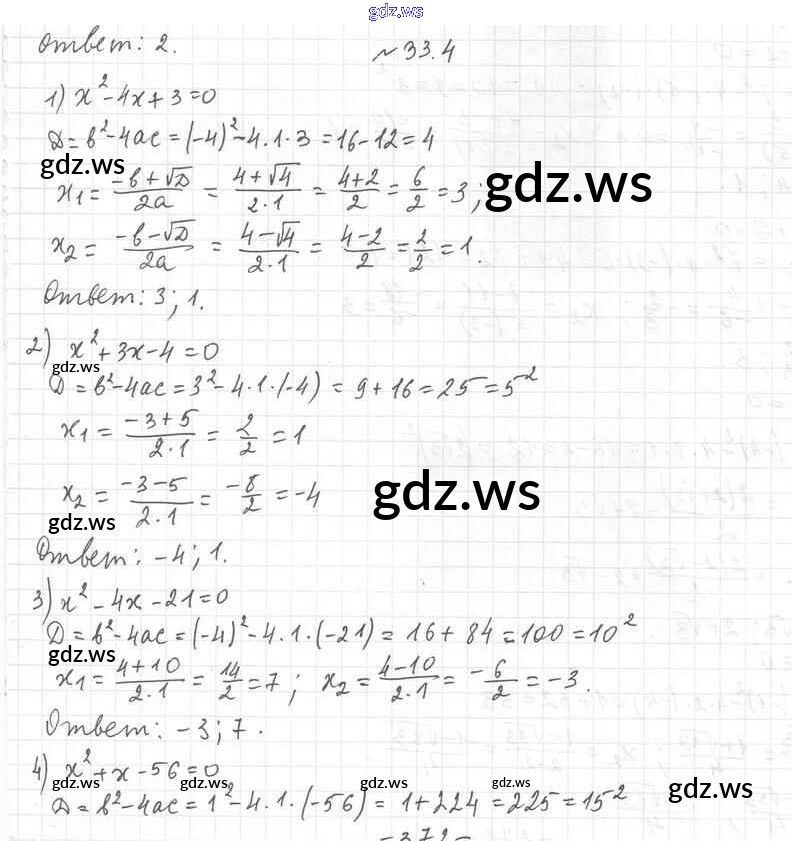 gdz.ws
Ответ: 2.
№ 33.4
1) x² - 4x + 3 = 0
D = b² - 4ac = (-4)² - 4·1·3 = 16 - 12 = 4
gdz.ws
x₁ = (-b + √D)/(2a) = (4 + √4)/(2·1) = (4+2)/2 = 6/2 = 3;
gdz.ws
x₂ = (-b - √D)/(2a) = (4 - √4)/(2·1) = (4-2)/2 = 2/2 = 1.
Ответ: 3; 1.
2) x² + 3x - 4 = 0
gdz.ws
D = b² - 4ac = 3² - 4·1·(-4) = 9 + 16 = 25 = 5²
x₁ = (-3+5)/(2·1) = 2/2 = 1
x₂ = (-3-5)/(2·1) = -8/2 = -4
gdz.ws
gdz.ws
Ответ: -4; 1.
3) x² - 4x - 21 = 0
D = b² - 4ac = (-4)² - 4·1·(-21) = 16 + 84 = 100 = 10²
gdz.ws
x₁ = (4+10)/(2·1) = 14/2 = 7; x₂ = (4-10)/(2·1) = -6/2 = -3.
Ответ: -3; 7.
4) x² + x - 56 = 0
gdz.ws gdz.ws gdz.ws gdz.ws gdz.ws
D = b² - 4ac = 1² - 4·1·(-56) = 1 + 224 = 225 = 15²